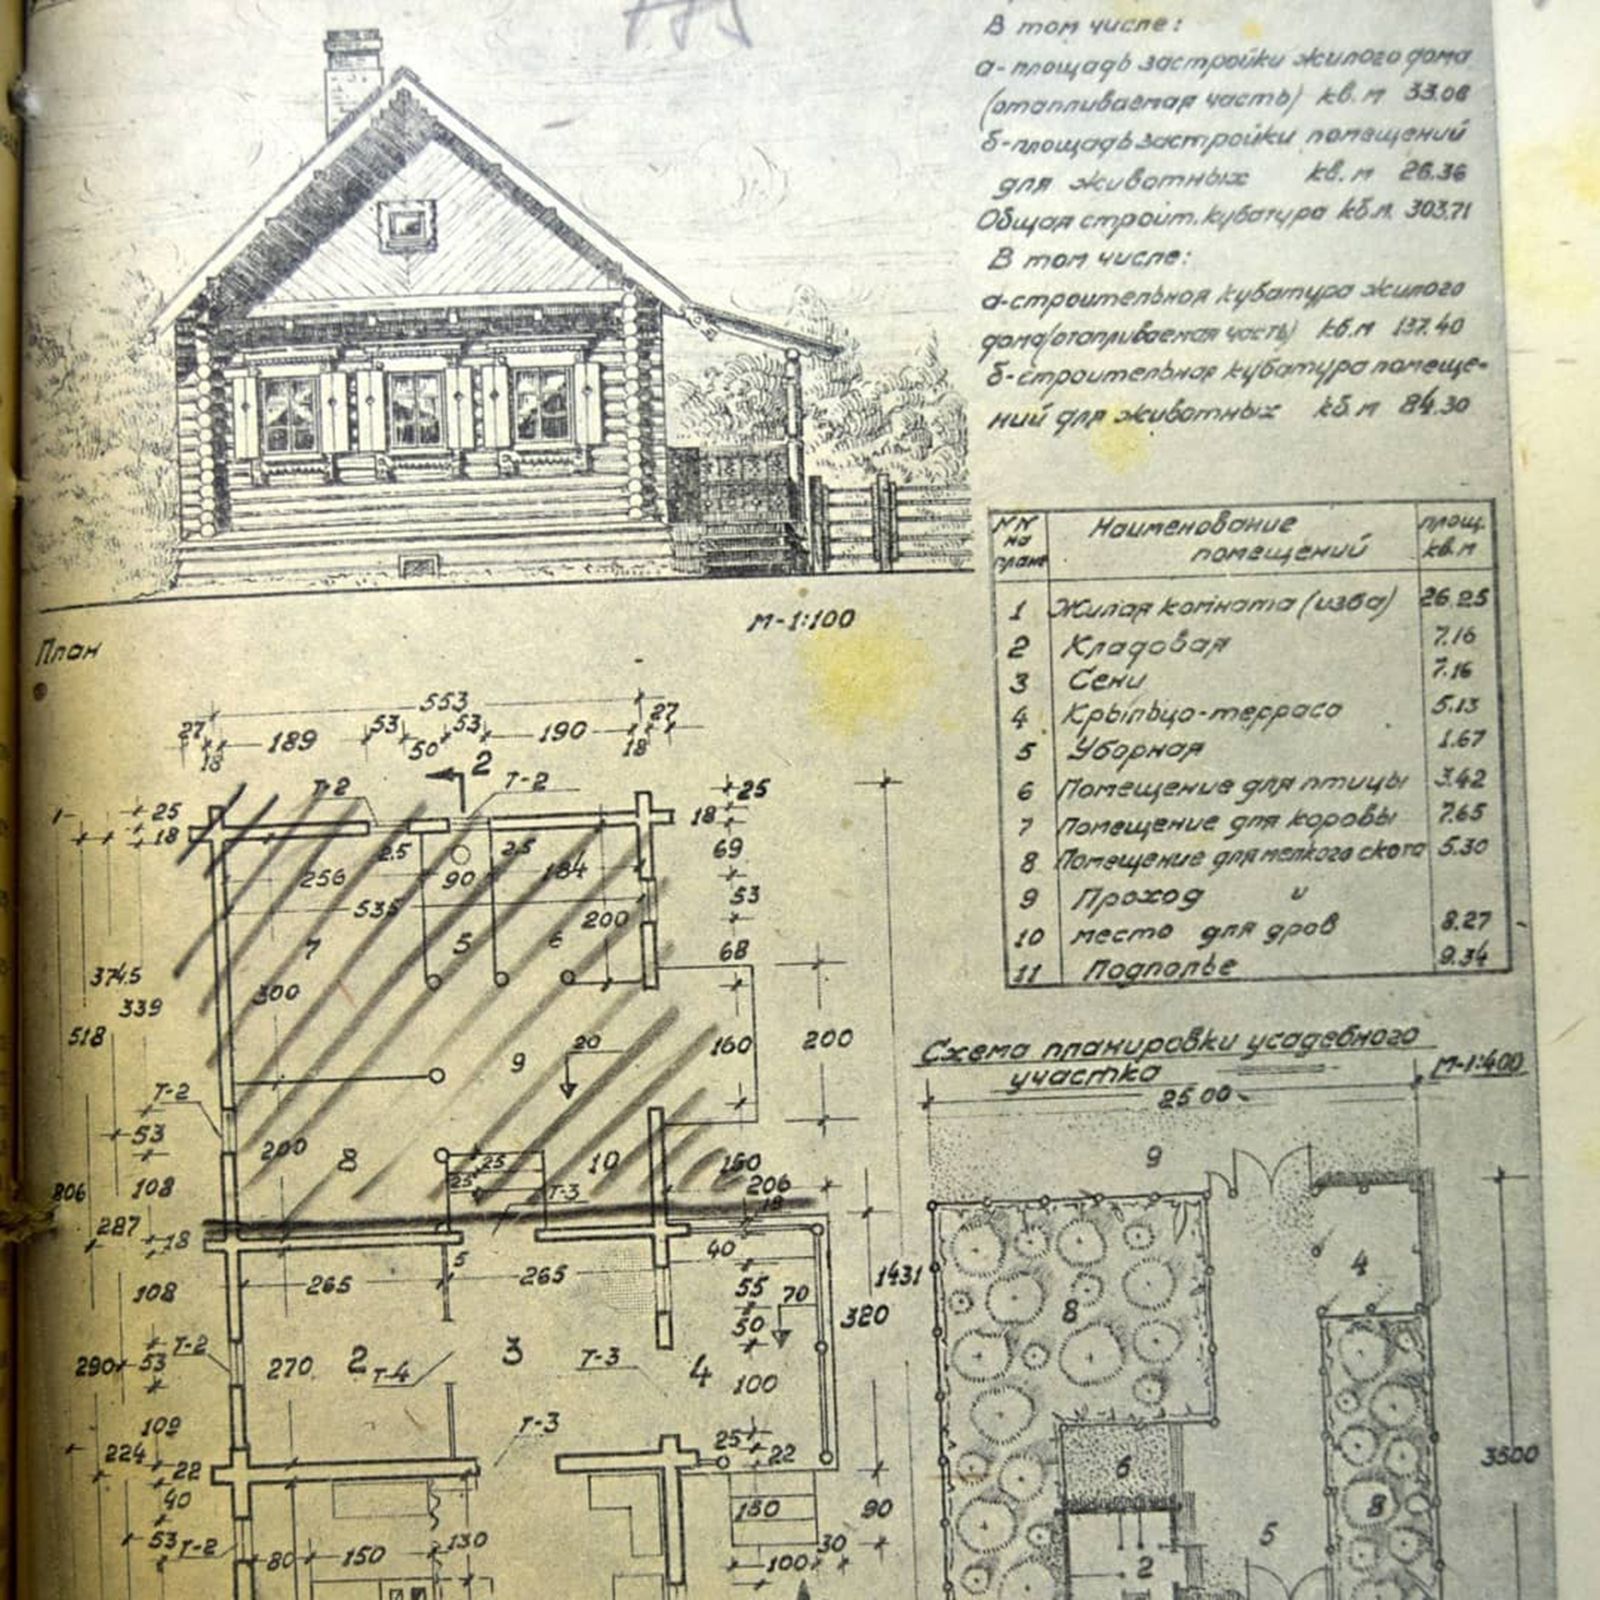 В том числе:
а-площадь застройки жилого дома
(отапливаемая часть) кв.м 33.06
б-площадь застройки помещений
для животных кв.м 26.36
Общая строит. кубатура кб.м. 303.71
В том числе:
а-строительная кубатура жилого
дома(отапливаемая часть) кб.м 137.40
б-строительная кубатура помеще-
ний для животных кб.м 84.30
М-1:100
План
№№ на плане Наименование помещений площ. кв.м
1 Жилая комната (изба) 26.25
2 Кладовая 7.16
3 Сени 7.16
4 Крыльцо-терраса 5.13
5 Уборная 1.67
6 Помещение для птицы 3.42
7 Помещение для коровы 7.65
8 Помещение для мелкого скота 5.30
9 Проход и
10 место для дров 8.27
11 Подполье 9.34
Схема планировки усадебного
участка М-1:400
25.00
553
27 189 53 50 53 190 27
18 18
2
Т-2 Т-2
25 25
18 18
25 25 69
256 90 184
53
535 200
7 5 6 68
374.5
339 300
518 160 200
9 20
Т-2
53
200 8 10 150
25
25 206
806 108 Т-3 18
287 18
5 40
265 265
108 55 70 1431
50 320
Т-2
290 53 270 2 Т-4 3 Т-3 4 100
109 Т-3
224 22 25 22
40 150 90
53 Т-2 80 150 130 100 30
9
4
8
3500
6
8
5
2